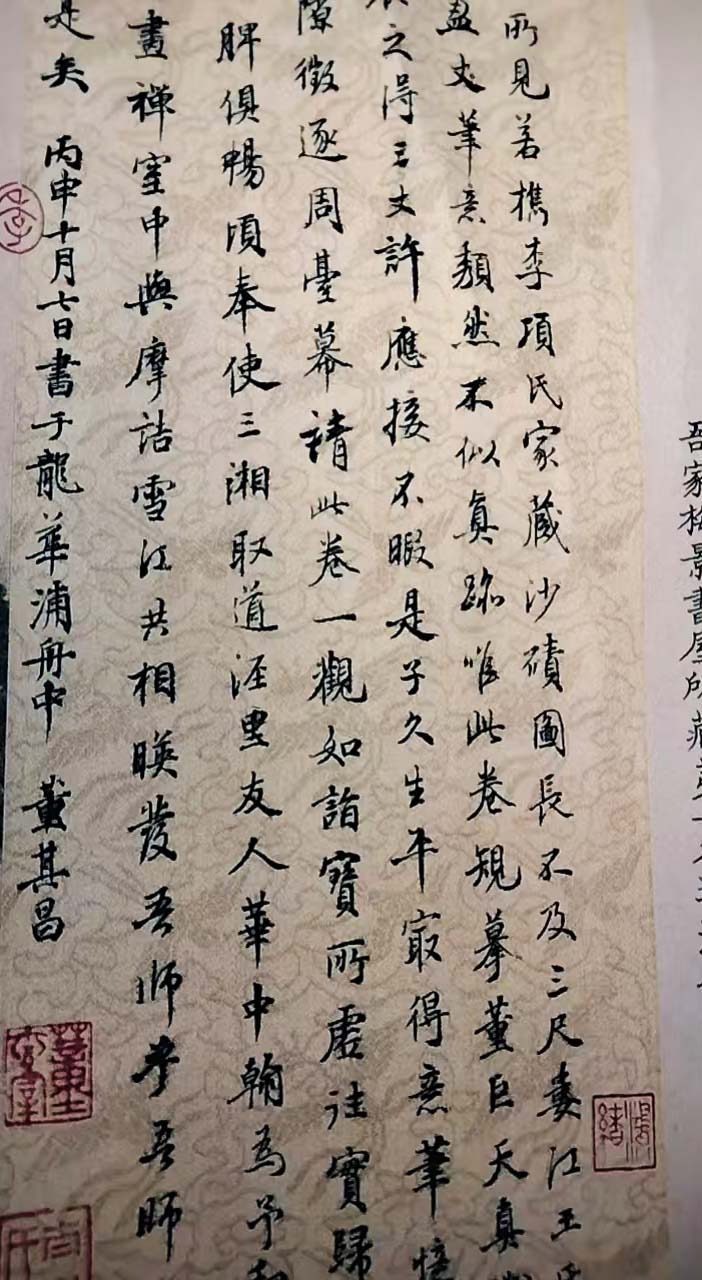 吾家梅景書屋所藏第一
所見若檇李項氏家藏沙磧圖長不及三尺婁江王
盈丈筆意頹然不似真跡唯此卷規摹董巨天真
之得三丈許應接不暇是子久生平冣得意筆憶
隙徵逐周臺幕請此卷一觀如詣寶所虛往實歸
脾俱暢頃奉使三湘取道涇里友人華中翰為予
畫禪室中與摩詰雪江共相暎發吾師乎吾師
是矣 丙申十月七日書于龍華浦舟中 董其昌